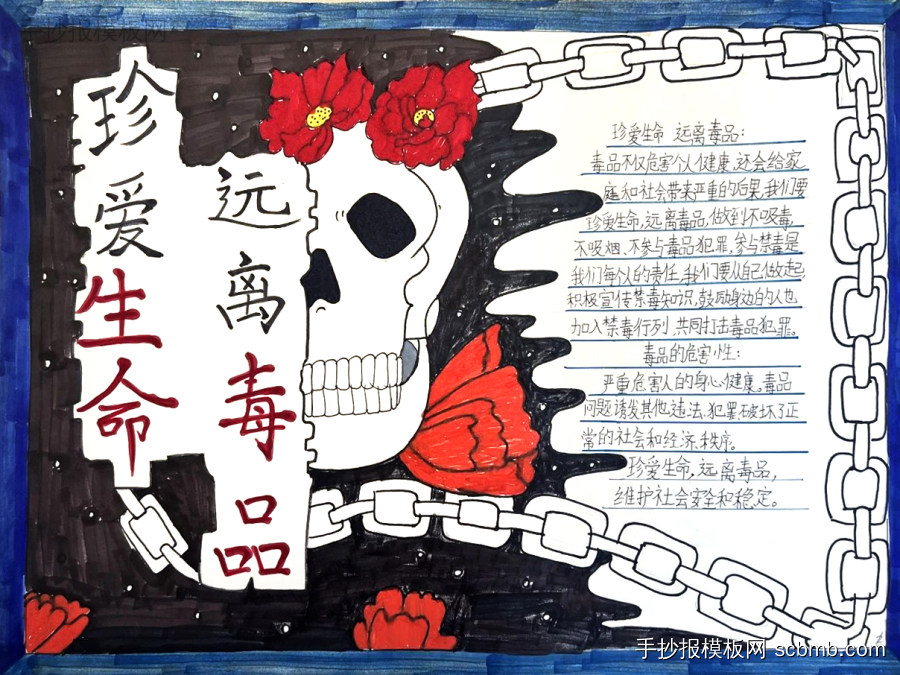 手抄报模板网
珍爱生命
远离毒品
珍爱生命 远离毒品:
毒品不仅危害个人健康,还会给家
庭和社会带来严重的后果,我们要
珍爱生命,远离毒品,做到不吸毒,
不吸烟、不参与毒品犯罪,参与禁毒是
我们每个人的责任,我们要从自己做起,
积极宣传禁毒知识,鼓励身边的人也
加入禁毒行列,共同打击毒品犯罪。
毒品的危害性:
严重危害人的身心健康。毒品
问题诱发其他违法犯罪破坏了正
常的社会和经济秩序。
珍爱生命,远离毒品,
维护社会安全和稳定。
手抄报模板网 scbmb.com